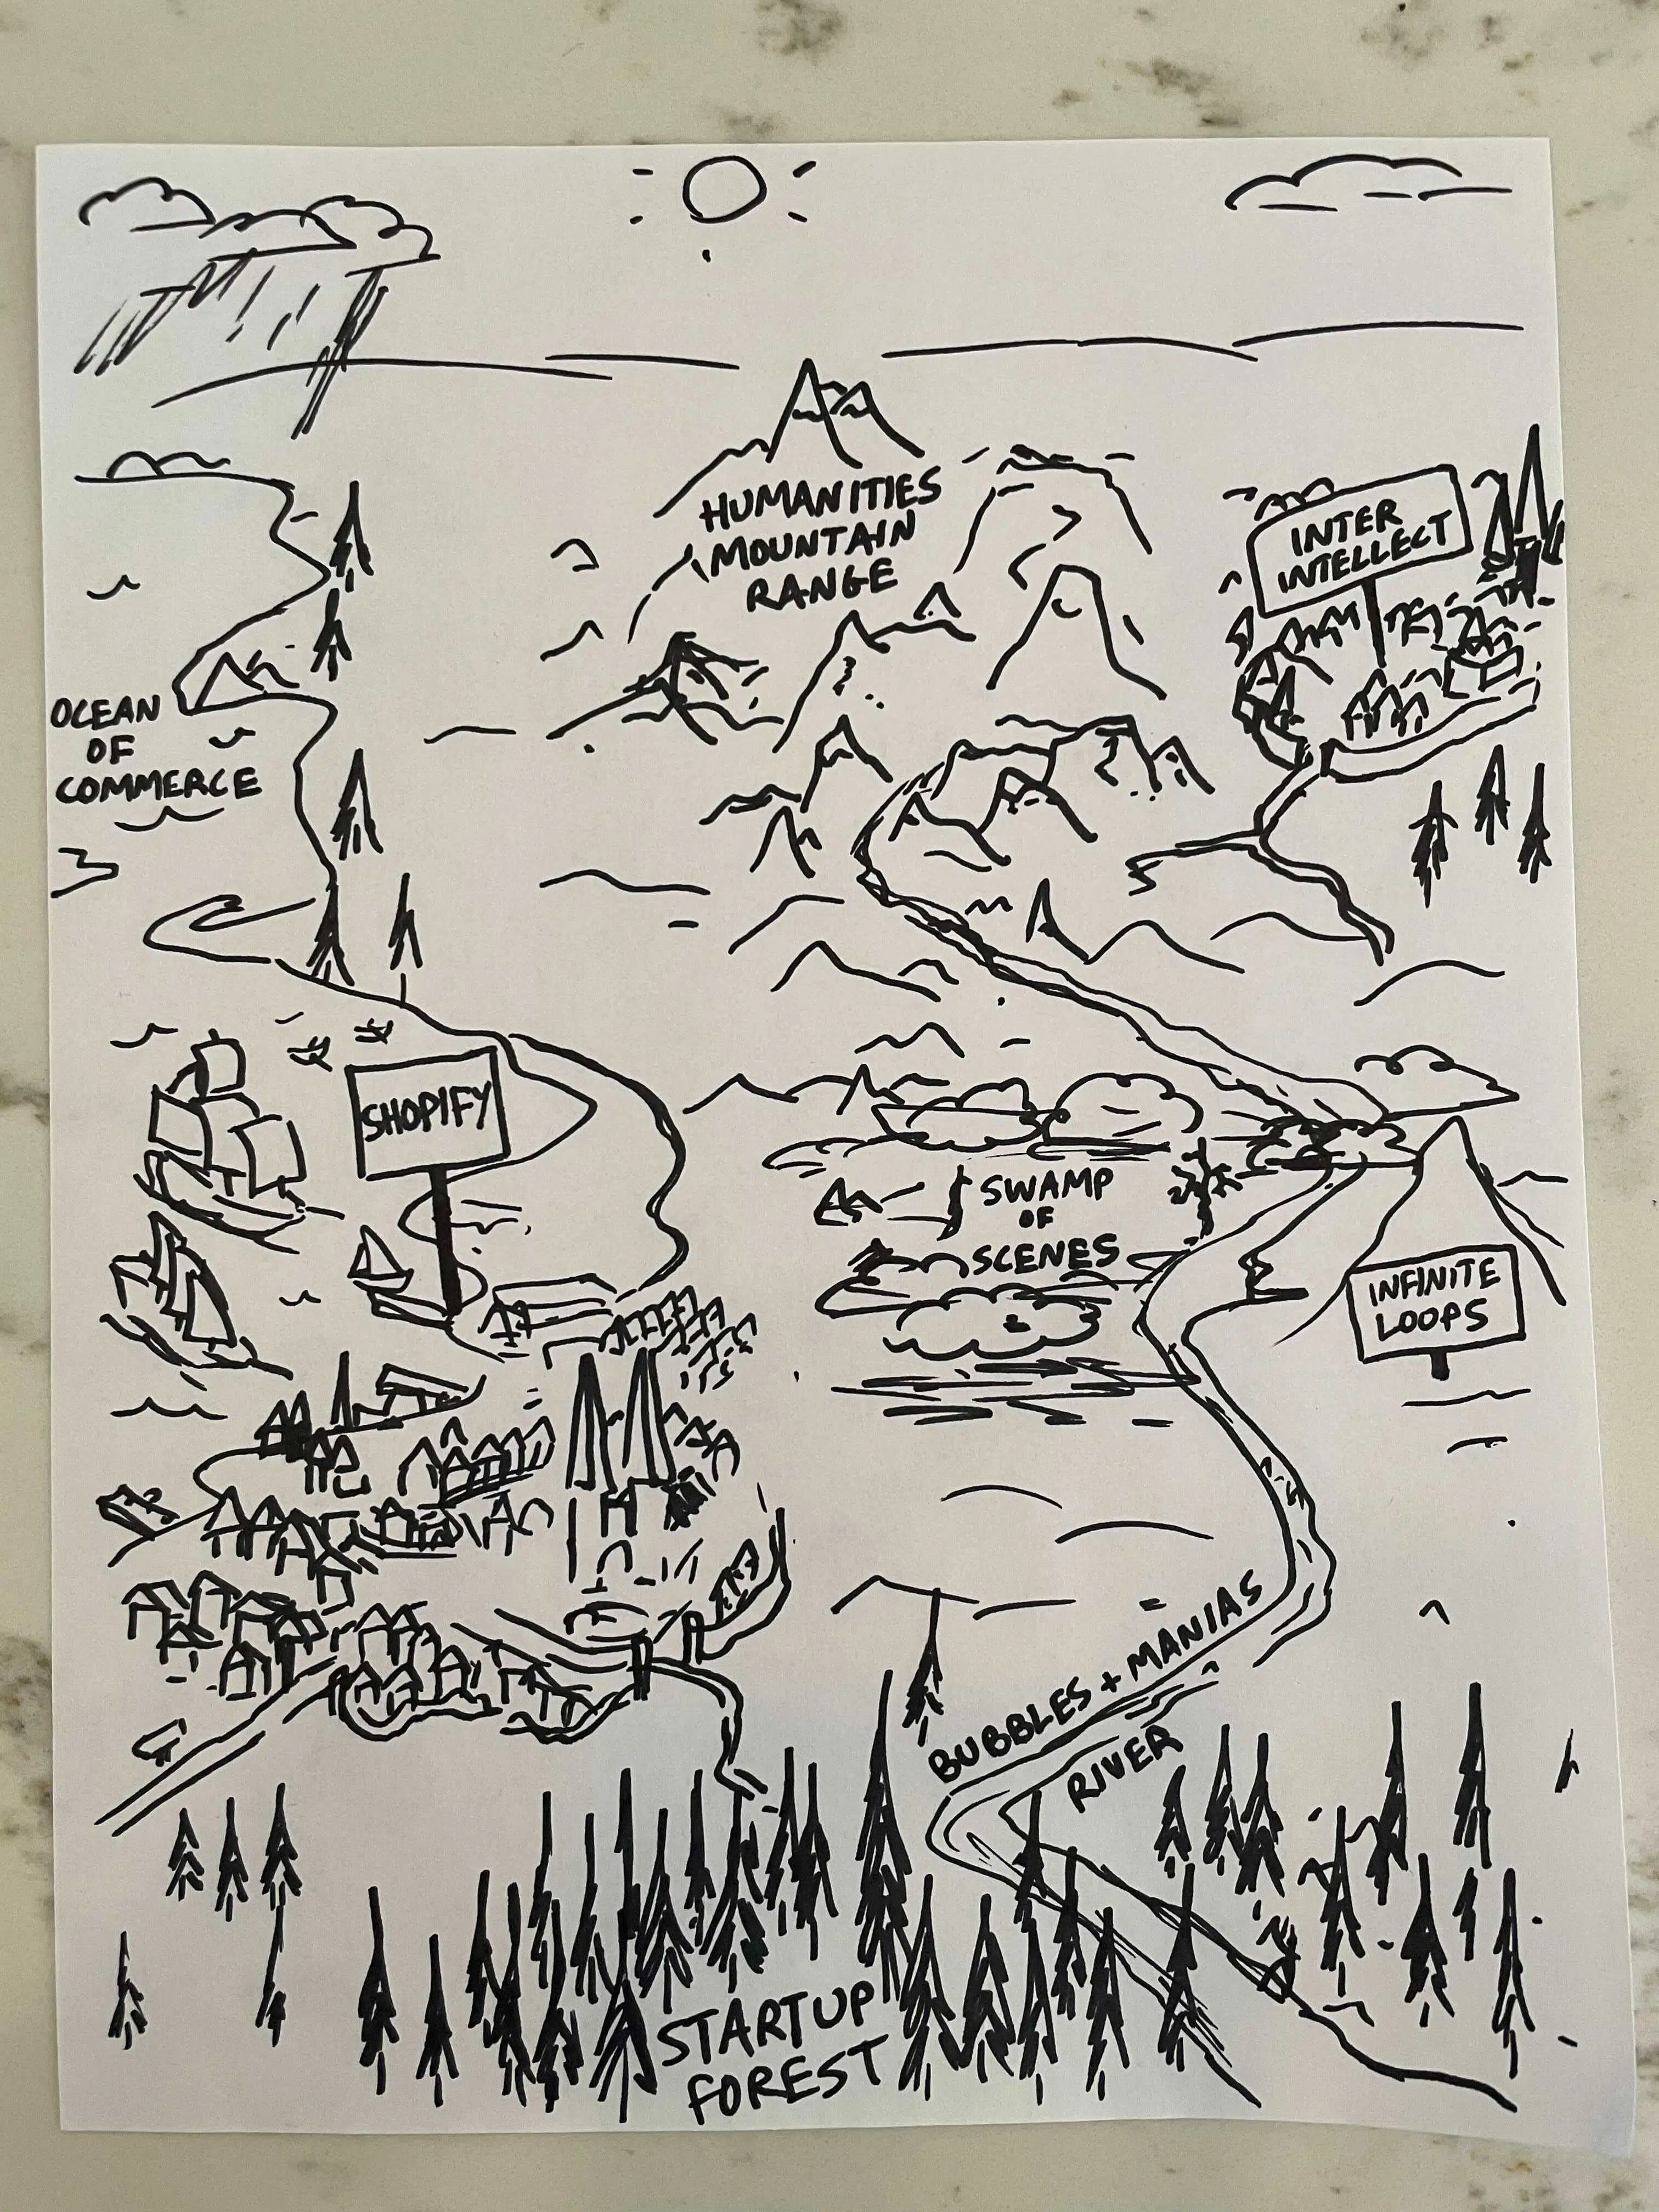 HUMANITIES
MOUNTAIN
RANGE
INTER
INTELLECT
OCEAN
OF
COMMERCE
SHOPIFY
SWAMP
OF
SCENES
INFINITE
LOOPS
BUBBLES + MANIAS
RIVER
STARTUP
FOREST